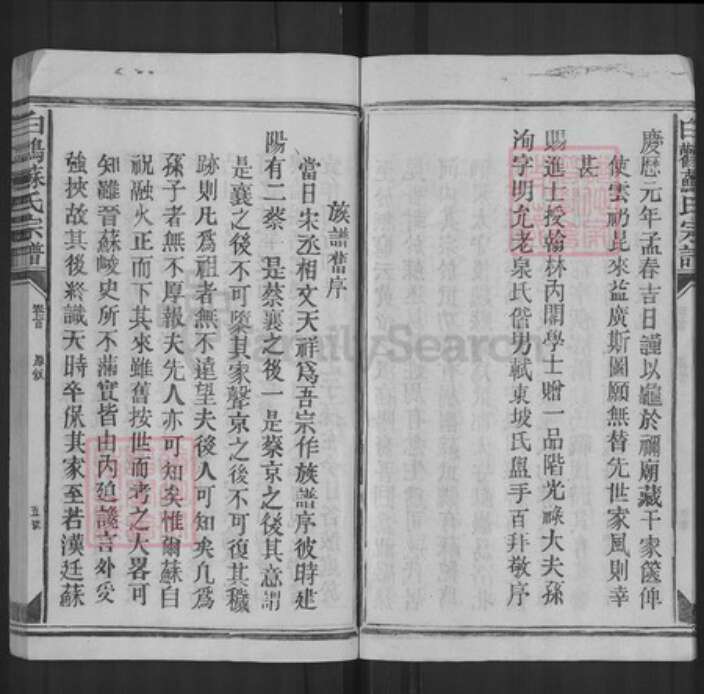 慶厯元年孟春吉日謹以龜於禰廟藏千家篋俾
使雲礽昆來益廣斯圖願無替先世家風則幸
甚
賜進士授翰林內閣學士贈一品階光祿大夫孫
洵字明允老泉氏偕男軾東坡氏盥手百拜敬序
族譜舊序
當日宋丞相文天祥爲吾宗作族譜序彼時建
陽有二蔡一是蔡襄之後一是蔡京之後其意謂
是襄之後不可墜其家聲京之後不可復其穢
跡則凡爲祖者無不遠望夫後人可知矣凡爲
孫子者無不厚報夫先人亦可知矣惟爾蘇自
祝融火正而下其來雖舊按世而考之大畧可
知雖晉蘇峻史所不滿實皆由內廹讒言外受
強挾故其後終識天時卒保其家至若漢廷蘇
白鶴蘇氏宗譜
卷首
五號
FamilySearch